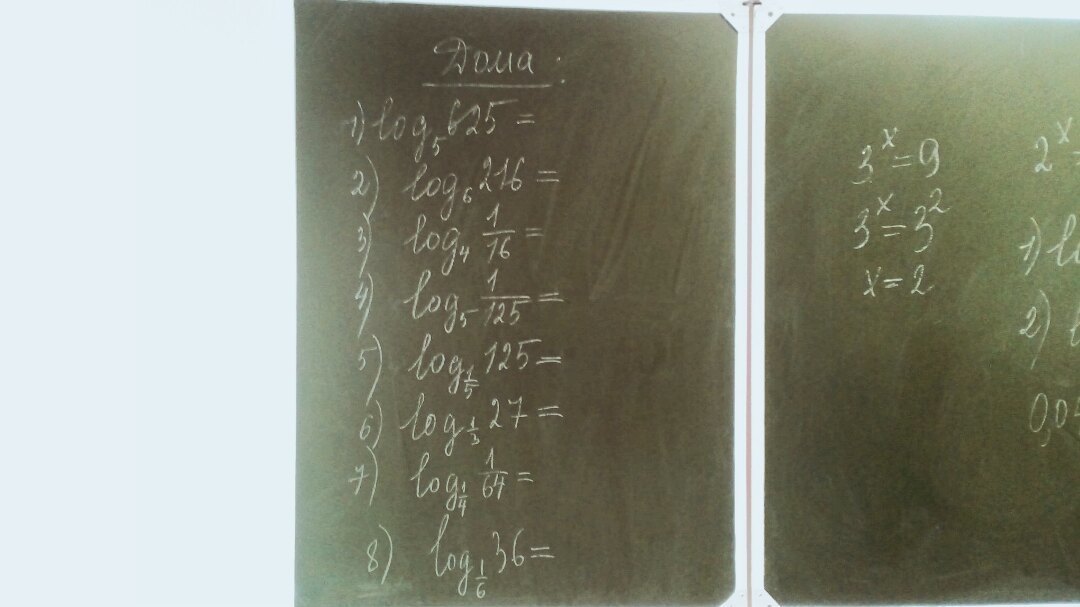 Дома:
1) log₅ 625 =
2) log₆ 216 =
3) log₄ 1/16 =
4) log₅ 1/125 =
5) log₁/₅ 125 =
6) log₁/₃ 27 =
7) log₁/₄ 1/64 =
8) log₁/₆ 36 =
3ˣ = 9
3ˣ = 3²
x = 2
2ˣ =
1) lo
2) l
0,0